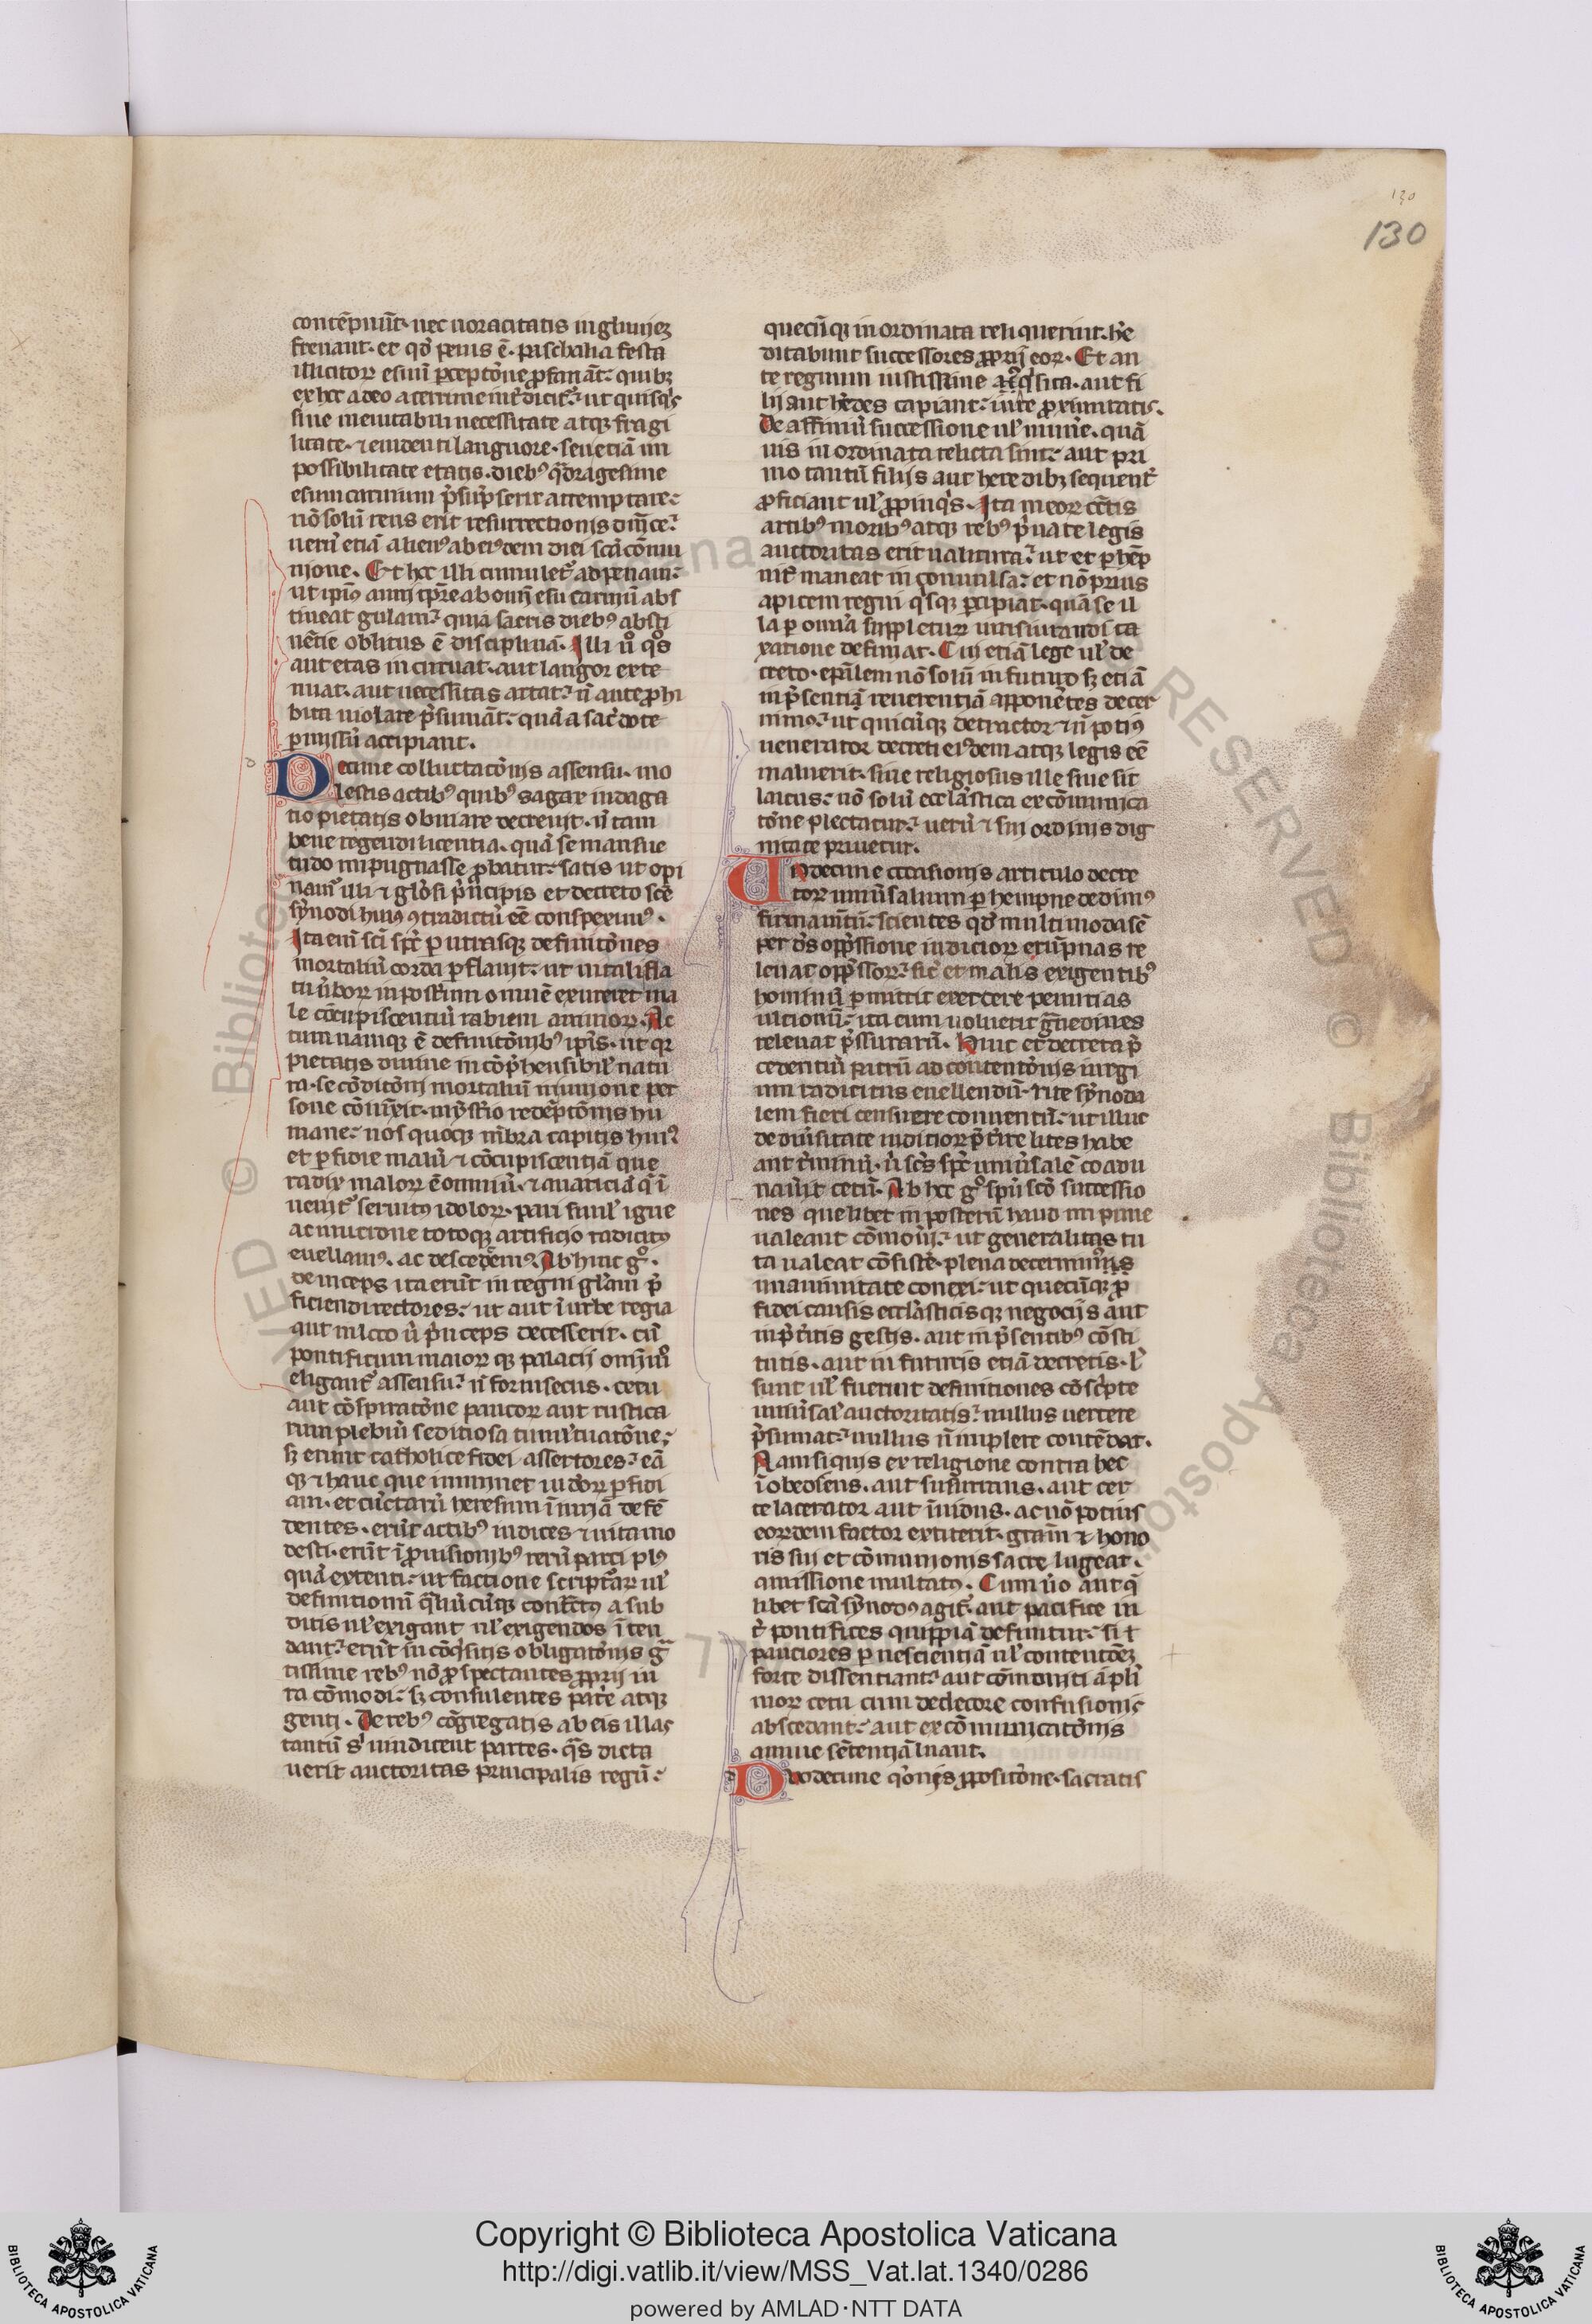 130
130
contēpniūt· nec uoracitatis ingluuiez
frenant· et qđ peius ē· paschalia festa
illicitoꝝ esuū ꝑceptōne ꝓfanāt: quibꝫ
ex hec adeo acerrime int̄dicit᷑: ut quisqͥs
sine ineuitabili necessitate atqꝫ fragi
litate· ⁊ euidenti languore· seu etiā im
possibilitate etatis· diebꝰ qͣdragesime
esum carnium p̄sūpserit attemptare:
nō solū reus erit resurrectionis dn̄ice:
uerū etiā alienꝰ ab eiꝰdem diei scā cōmu
nione· Et hec illi cumulet᷑ ad penam:
ut ipiꝰ anni tp̄re ab omni esu carniū abs
tineat gulam: quia sacris diebꝰ absti
nētie oblitus ē disciplinā· Illi ů qͦs
aut etas incuruat· aut langor exte
nuat· aut necessitas artat: ñ ante ꝓhi
bita uiolare p̄sumāt: quā a sac̄dote
ꝑmissū accipiant·
Decime colluctatōnis assensu· mo
lestis actibꝰ quibꝰ sagax indaga
tio pietatis obuiare decreuit· ñ tam
bene regendi licentia· quā se mansue
tudo inpugnasse ꝓbatur: satis ut opi
nam᷑ illi ⁊ glōsi p̄ncipis et decreto scē
synodi huiꝰ ꝯtradictū eē conspeximꝰ·
Ita eni sc̄i sp̄c ꝑ utrasqꝫ definitōnes
mortaliū corda ꝑflauit: ut uitali fla
tu ůboꝝ inpostrium omnē exureret ma
le cōcupiscentiū rabiem animoꝝ· Ac
tum namqꝫ ē definitōnibꝰ ipīs· ut qꝛ
pietatis diuine incōp̄hensibil̄ natu
ra· se cōditōni mortaliū munione per
sone cōnūxit· mȳst̄io redēptōnis hu
mane: nos quoqꝫ mēbra capitis huiꝰ
et ꝑfidie malū ⁊ cōcupiscentiā que
radix maloꝝ ē omniū· ⁊ auariciā q̄ ī
uenit᷑ seruitꝰ idoloꝝ· pari simul̄ igne
ac mucrone totoqꝫ artificio radicitꝰ
euellamꝰ· ac descedēmꝰ· Ab hinc gͦ·
deinceps ita erūt in regni glām p̄
ficiendi rectores: ut aut ī urbe regia
aut in loco ů p̄nceps decesserit· cū
pontificum maioꝝ qꝫ palacii omīm̊
eligant᷑ assensu: ñ forinsecus· cetu
aut cōspiratōne paucoꝝ aut rustica
rum plebiū seditiosa tumultuatōne:
sꝫ erunt catholice fidei assertores: eā
qꝫ ⁊ hanc que imminet iudeoꝝ ꝑfidi
am· et cūctarū heresum īiuriā defē
dentes· erūt actibꝰ iudices ⁊ uita mo
desti· erūt ī ꝓuisionibꝰ rerū parci plꝰ
quā extenti: ut factione scriptaꝝ ul̄
definitionū q̄libůcūqꝫ cont̄ctꝰ a sub
ditis ul̄ exigant ul̄ exigendos ī ten
dant: erūt in cōqͥsitis obligatōnis gͣ
tissime rebꝰ nō ꝓspectantes ꝓprii iu
ra cōmodi: sꝫ consulentes pat̄e atqꝫ
genti· De rebꝰ cōgregatis ab eis illas
tantū s̄ uindicent partes· qͣs dicta
uerit auctoritas principalis regū:
quecūqꝫ inordinata reliquerint· he̅
ditabunt successores ꝓprii eoꝝ· Et an
te regnum iustissime ac̄qͥsita· aut fi
lii aut he̅des capiant: iure ꝓximitatis·
De affiniū successione ul̄ mun̄e· quā
uis inordinata relicta sint: aut pri
mo tantū filiis aut heredibꝫ sequent᷑
ꝓficiant ul̄ ꝓpinqͥs· Ita in eoꝝ cēt̄is
artibꝰ moribꝰ atqꝫ rebꝰ p̄uate legis
auctoritas erit ualitura: ut et ꝑhēp
nit᷑ maneat inconuulsa: et nō prius
apicem regni qͥsqꝫ ꝑcipiat· quā se il
la ꝑ omīa suppletuꝝ iurisiurandi ta
xatione definiat· Cui etiā lege ul̄ de
creto· epālem nō solū in futuro sꝫ etiā
in p̄sentiā reuerentiā apponētes decer
nimꝰ: ut quicūqꝫ detractor ⁊ ñ potiꝰ
uenerator decreti eiꝰdem atqꝫ legis eē
maluerit· siue religiosus ille siue sit
laicus: nō solū eccl̄astica excōmunica
tōne plectatur: uerū ⁊ sui ordinis dig
nitate priuetur·
Undecime occasionis articulo decre
toꝝ uniůsalium ꝑhempne dedimꝰ
firmamtū: scientes qđ multimoda sē
per dn̄s opp̄ssione iudicioꝝ erūpnas re
leuat opp̄ssoꝝ: sic̄ et malis exigentibꝰ
hominū ꝑmittit exercere penurias
ultionū: ita cum uoluerit gͣues dines
releuat p̄ssuraꝝ· Hinc et decreta p̄
cedentiū patrū ad contentōnis iurgi
um radicitus euellendū· rite synoda
lem fieri censuere conuentū: ut illuc
de diůsitate iudicioꝝ p̄t̄ite lites habe
ant t̄minū· ů sc̄s sp̄c uniůsalē coadu
nauit cetū· Ab hec gͦ spū scō successio
nes quelibet in posterū haud impune
ualeant cōmoūi: ut generalitas tu
ta ualeat cōsist̄e· plena decernimꝰs
unanimitate conc̄ei: ut quecūqꝫ ꝓ
fidei causis eccl̄asticisqꝫ negociis aut
in p̄t̄itis gestis· aut in p̄sentibꝰ cōsti
tutis· aut in futuris etiā decretis· l̄
sunt ul̄ fuerint definitiones cōsc̄pte
uniůsal̄ auctoritatis: nullus uertere
p̄sumat: nullus ñ implere contēdat·
Nam siquis ex religione contra hec
īobediens· aut susurrans· aut cer
te lacerator aut īuidus· ac nō potius
eoꝝdem factor extiterit· grām ⁊ hono
ris sui et cōmunionis sacre lugeat·
amissione multatꝰ· Cum ůo aut q̄
libet scā synodꝰ agit᷑· aut pacifice in
t̄ pontifices quippiā definitur: si t̄
pauciores ꝑ nescientiā ul̄ contentōez
forte dissentiant: aut cōmoniti a pl̄i
moꝝ cetu cum dedecore confusionis
abscedant: aut excōmunicatōnis
annue sētentiā luant·
Duodecime qͦonis ꝓpositōne· sacratis
Copyright © Biblioteca Apostolica Vaticana
http://digi.vatlib.it/view/MSS_Vat.lat.1340/0286
powered by AMLAD·NTT DATA
BIBLIOTECA APOSTOLICA VATICANA
BIBLIOTECA APOSTOLICA VATICANA